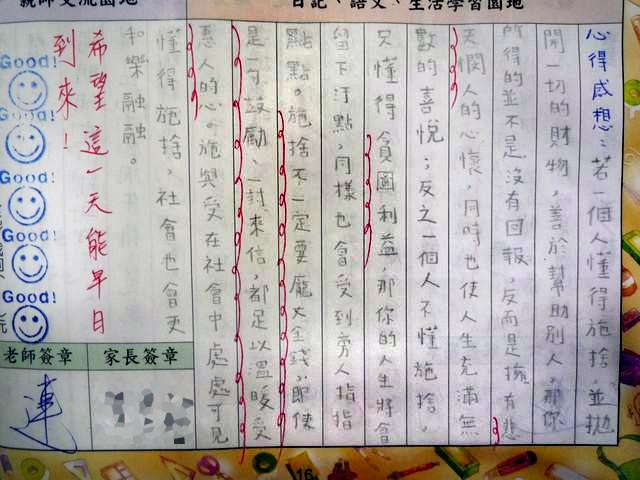 日記、語文、生活學習園地
心得感想：若一個人懂得施捨，並拋
開一切的財物，善於幫助別人，那你
所得的並不是沒有回報，反而是擁有悲
天憫人的心懷，同時也使人生充滿無
數的喜悅；反之一個人不懂施捨，
只懂得貪圖利益，那你的人生將會
留下汙點，同樣也會受到旁人指指
點點。施捨不一定要龐大金錢，即使
是一句鼓勵、一封來信，都足以溫暖受
惠人的心。施與受在社會中處處可見
懂得施捨，社會也會更
和樂融融。
希望這一天能早日
到來！
親師交流園地
Good!
Good!
Good!
Good!
Good!
家長簽章
老師簽章
連
16